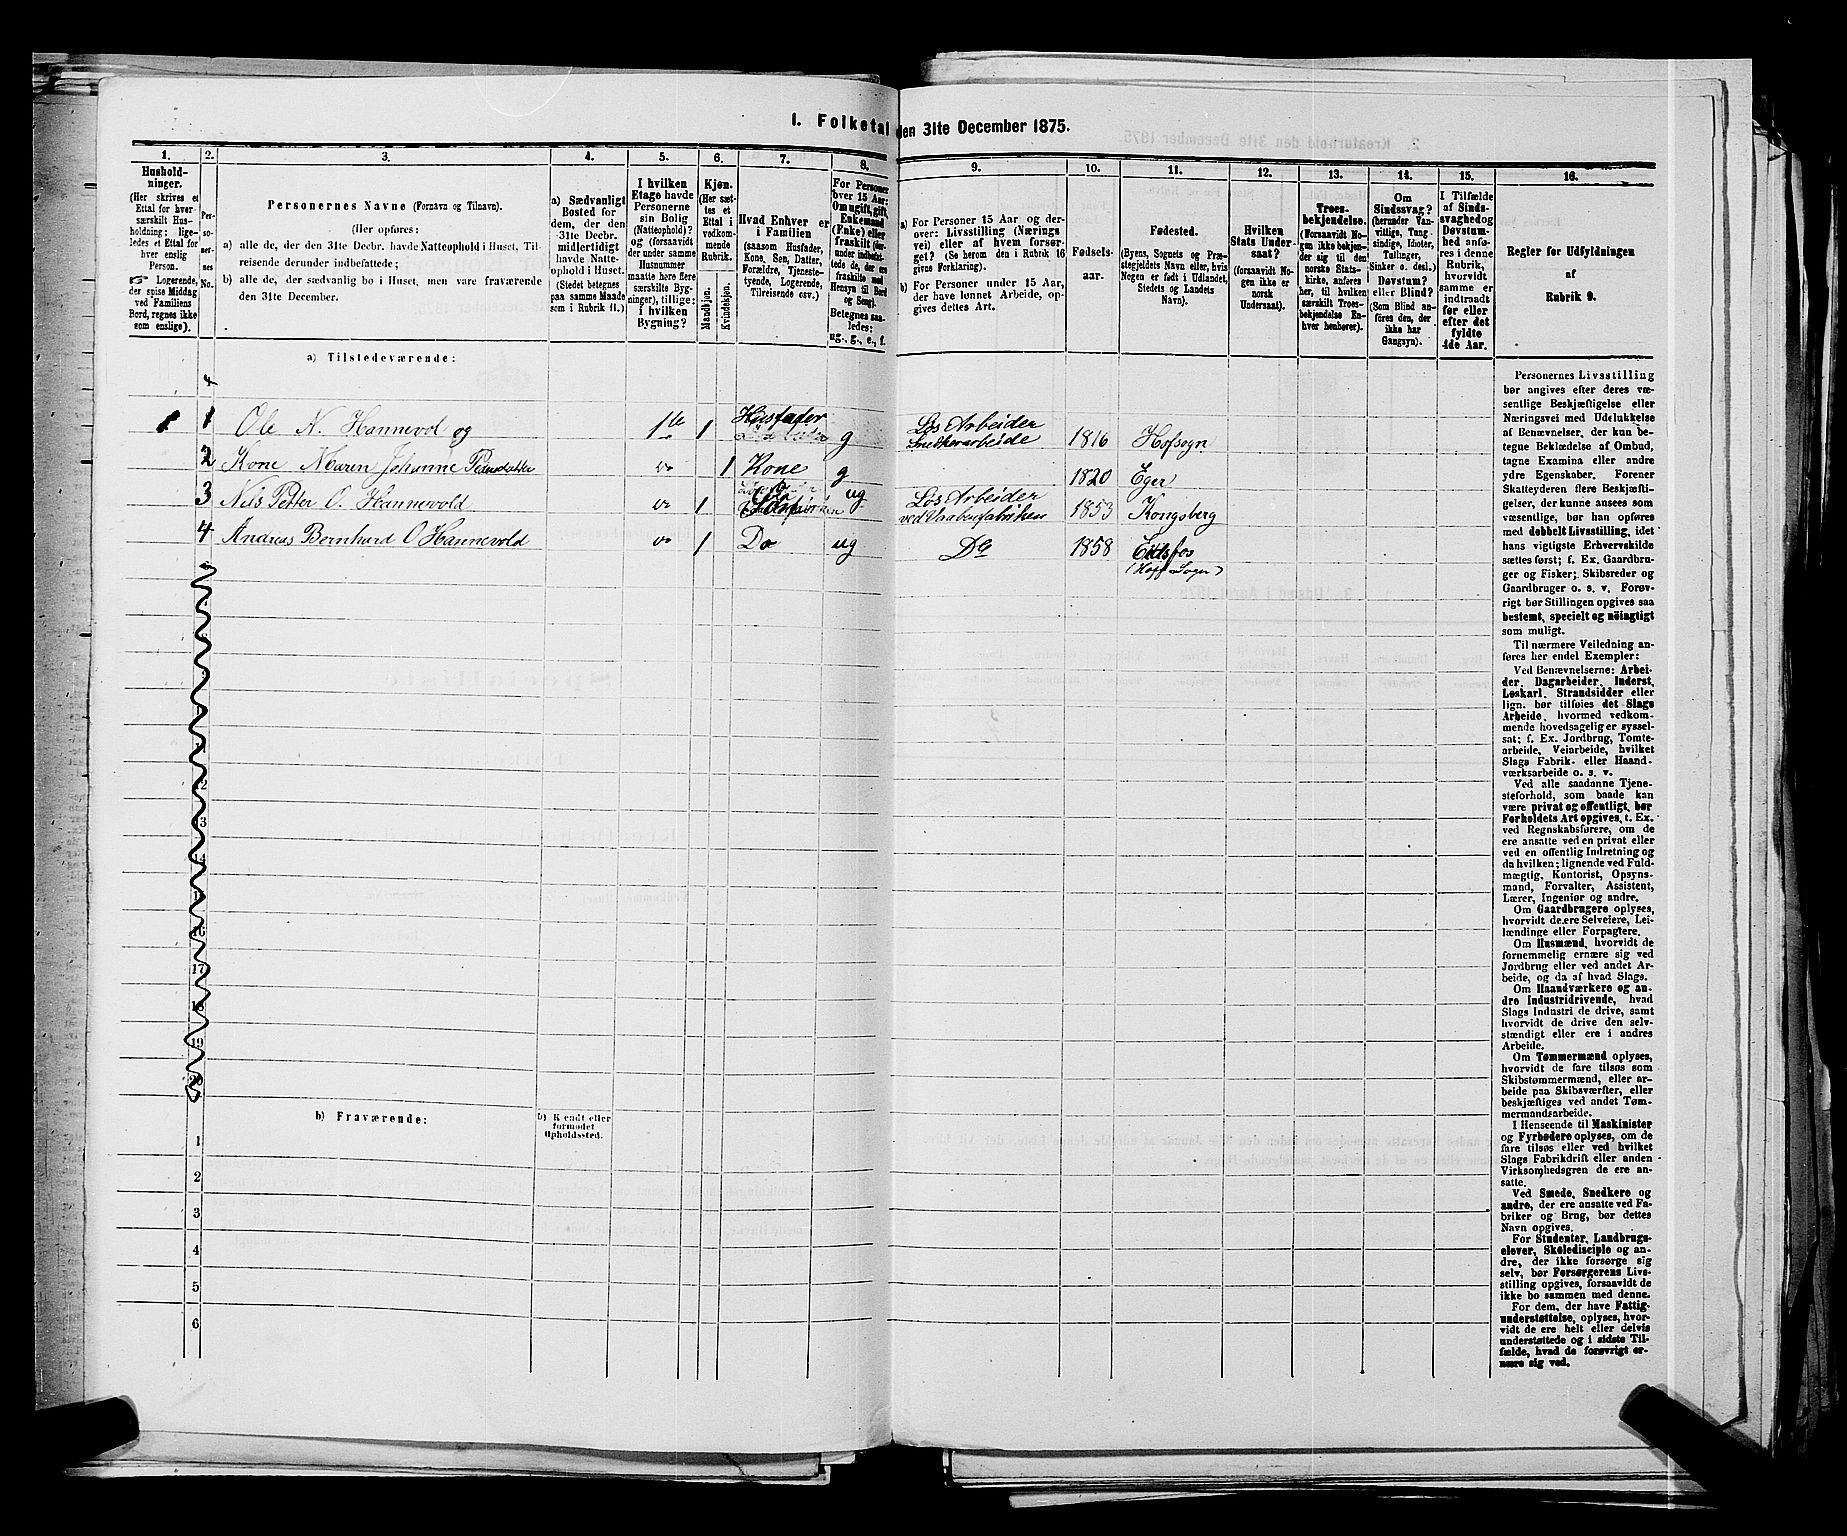 1. Folketal den 31te December 1875.
1. 2. 3. 4. 5. 6. 7. 8. 9. 10. 11. 12. 13. 14. 15. 16.
Hushold-
ninger.
(Her skrives et
Ettal for hver
særskilt Hus-
holdning; lige-
ledes et Ettal for
hver enslig
Person.
Logerende,
der spise Middag
ved Familiens
Bord, regnes ikke
som enslige).
Per-
so-
ner-
nes
No.
Personernes Navne (Fornavn og Tilnavn).
(Her opføres:
a) alle de, der den 31te Decbr. havde Natteophold i Huset, Til-
reisende derunder indbefattede;
b) alle de, der sædvanlig bo i Huset, men vare fraværende
den 31te December.
a) Sædvanligt
Bosted for
dem, der den
31te Decbr.
midlertidigt
havde Natte-
ophold i Huset.
(Stedet betegnes
paa samme Maade
som i Rubrik 11.)
I hvilken
Etage havde
Personerne
sin Bolig
(Natteophold)?
og (forsaavidt
der under samme
Husnummer
maatte here flere
særskilte Byg-
ninger), tillige:
i hvilken
Bygning?
Kjøn.
(Her sæt-
tes et
Ettal i
vedkom-
mende
Rubrik.
Mandkjøn.
Kvindekjøn.
Hvad Enhver er
i Familien
(saasom Husfader,
Kone, Søn, Datter,
Forældre, Tjeneste-
tyende, Logerende,
Tilreisende osv.)
For Personer
over 15 Aar:
Om ugift, gift,
Enkemand
(Enke) eller
fraskilt (der-
under indbefat-
tede de, der ere
fraskilte med
Hensyn til Bord
og Seng).
Betegnes saa-
ledes:
ug., g., e., f.
a) For Personer 15 Aar og der-
over: Livsstilling (Nærings
vei) eller af hvem forsør-
get? (Se herom den i Rubrik 16
givne Forklaring).
b) For Personer under 15 Aar,
der have lønnet Arbeide, op-
gives dettes Art.
Fødsels-
aar.
Fødested.
(Byens, Sognets og Præ-
stegjeldets Navn eller, hvis
Nogen er født i Udlandet,
Stedets og Landets
Navn).
Hvilken
Stats Under-
saat?
(forsaavidt No-
gen ikke er
norsk
Undersaat).
Troes-
bekjendelse.
(Forsaavidt No-
gen ikke bekjen-
der sig til den
norske Stats-
kirke, anføres
her, til hvilken
særskilt Troes-
bekjendelse En-
hver henhører).
Om
Sindssvag?
(herunder Van-
vittige, Tung-
sindige, Idioter,
Tullinger,
Sinker o. desl.)
Døvstum?
eller Blind?
(Som Blind an-
føres den, der
ikke har
Gangsyn).
I Tilfælde
af Sinds-
svaghed og
Døvstum-
hed anfø-
res i denne
Rubrik,
hvorvidt
samme er
indtraadt
før eller
efter det
fyldte
4de Aar.
Regler for Udfyldningen
af
Rubrik 9.
a) Tilstedeværende:
4
1 1 Ole N. Hannevol og 1ste 1 Husfader g Løs Arbeider Snedkerarbeide 1816 Hofsogn
2 Kone Maren Johanne do 1 Kone g 1820 Eger
3 Nils Petter O. Hannevold do 1 ug Løs Arbeider ved Vaabenfabriken 1853 Kongsberg
4 Andreas Bernhard O Hannevold do 1 Do ug Do 1858 Eidsfos
(Hoff Sogn)
12
13
14
16
17
18
19
20
b) Fraværende:
b) Kjendt eller
formodet
Opholdssted.
1
2
3
4
5
6
Personernes Livsstilling
bør angives efter deres væ-
sentlige Beskjæftigelse eller
Næringsvei med Udelukkelse
af Benævnelser, der kun be-
tegne Beklædelse af Ombud,
tagne Examina eller andre
ydre Egenskaber. Forener
Skatteyderen flere Beskjæfti-
gelser, der kunne ansees som
væsentlige, bør han opføres
med dobbelt Livsstilling, idet
hans vigtigste Erhvervskilde
sættes først; f. Ex. Gaardbru-
ger og Fisker; Skibsreder og
Gaardbruger o. s. v. Forøv-
rigt bør Stillingen opgives saa
bestemt, specielt og nöiagtigt
som muligt.
Til nærmere Veiledning an-
føres her endel Exempler:
Ved Benævnelserne: Arbei-
der, Dagarbeider, Inderst,
Løskarl, Strandsidder eller
lign. bør tilføies det Slags
Arbeide, hvormed vedkom-
mende hovedsagelig er syssel-
sat; f. Ex. Jordbrug, Tomte-
arbeide, Veiarbeide, hvilket
Slags Fabrik- eller Haand-
værksarbeide o. s. v.
Ved alle saadanne Tjene-
steforhold, som baade kan
være privat og offentligt, bør
Forholdets Art opgives, t. Ex.
ved Regnskabsførere, om de
ere ansatte ved en privat eller
ved en offentlig Indretning og
da hvilken; lignende ved Fuld-
mægtig, Kontorist, Opsyns-
mand, Forvalter, Assistent,
Lærer, Ingeniør og andre.
Om Gaardbrugere oplyses,
hvorvidt de ere Selveiere, Lei-
lændinge eller Forpagtere.
Om Husmænd, hvorvidt de
fornemmelig ernære sig ved
Jordbrug eller ved andet Ar-
beide, og da af hvad Slags.
Om Haandværkere og an-
dre Industridrivende, hvad
Slags Industri de drive, samt
hvorvidt de drive den selv-
stændigt eller ere i andres
Arbeide.
Om Tømmermænd oplyses,
hvorvidt de fare tilsøs som
Skibstømmermænd, eller ar-
beide paa Skibsværfter, eller
beskjæftiges ved andet Tøm-
mermandsarbeide.
I Henseende til Maskinister
og Fyrbødere oplyses, om de
fare tilsøs eller ved hvilket
Slags Fabrikdrift eller anden
Virksomhedsgren de ere an-
satte.
Ved Smede, Snedkere og
andre, der ere ansatte ved Fa-
briker og Brug, bør dettes
Navn opgives.
For Studenter, Landbrugs-
elever, Skoledisciple og an-
dre, der ikke forsørge sig
selv, bør Forsørgerens Livs-
stilling opgives, forsaavidt de
ikke bo sammen med denne.
For dem, der have Fattig-
understøttelse, oplyses, hvor-
vidt de ere helt eller delvis
understøttede og i sidste Til-
fælde, hvad de forøvrigt er-
nære sig ved.